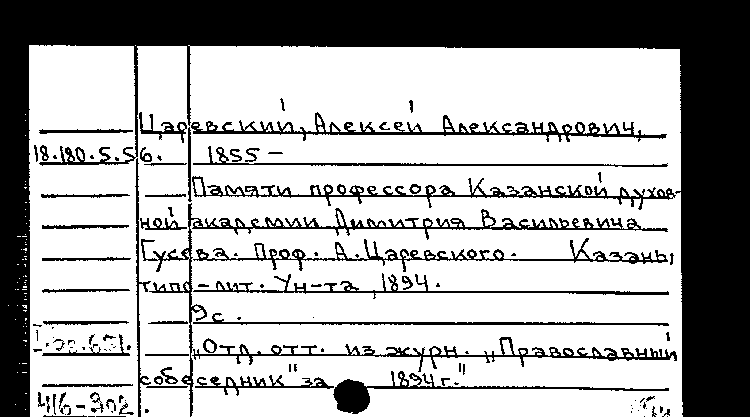 Царевский, Алексей Александрович,
18.180.5.56. 1855 –
Памяти профессора Казанской духов-
ной академии Димитрия Васильевича
Гусева. Проф. А. Царевского. Казань,
типо-лит. Ун-та, 1894.
9с.
„Отд. отт. из журн. „Православный
собеседник" за 1894г."
416-902